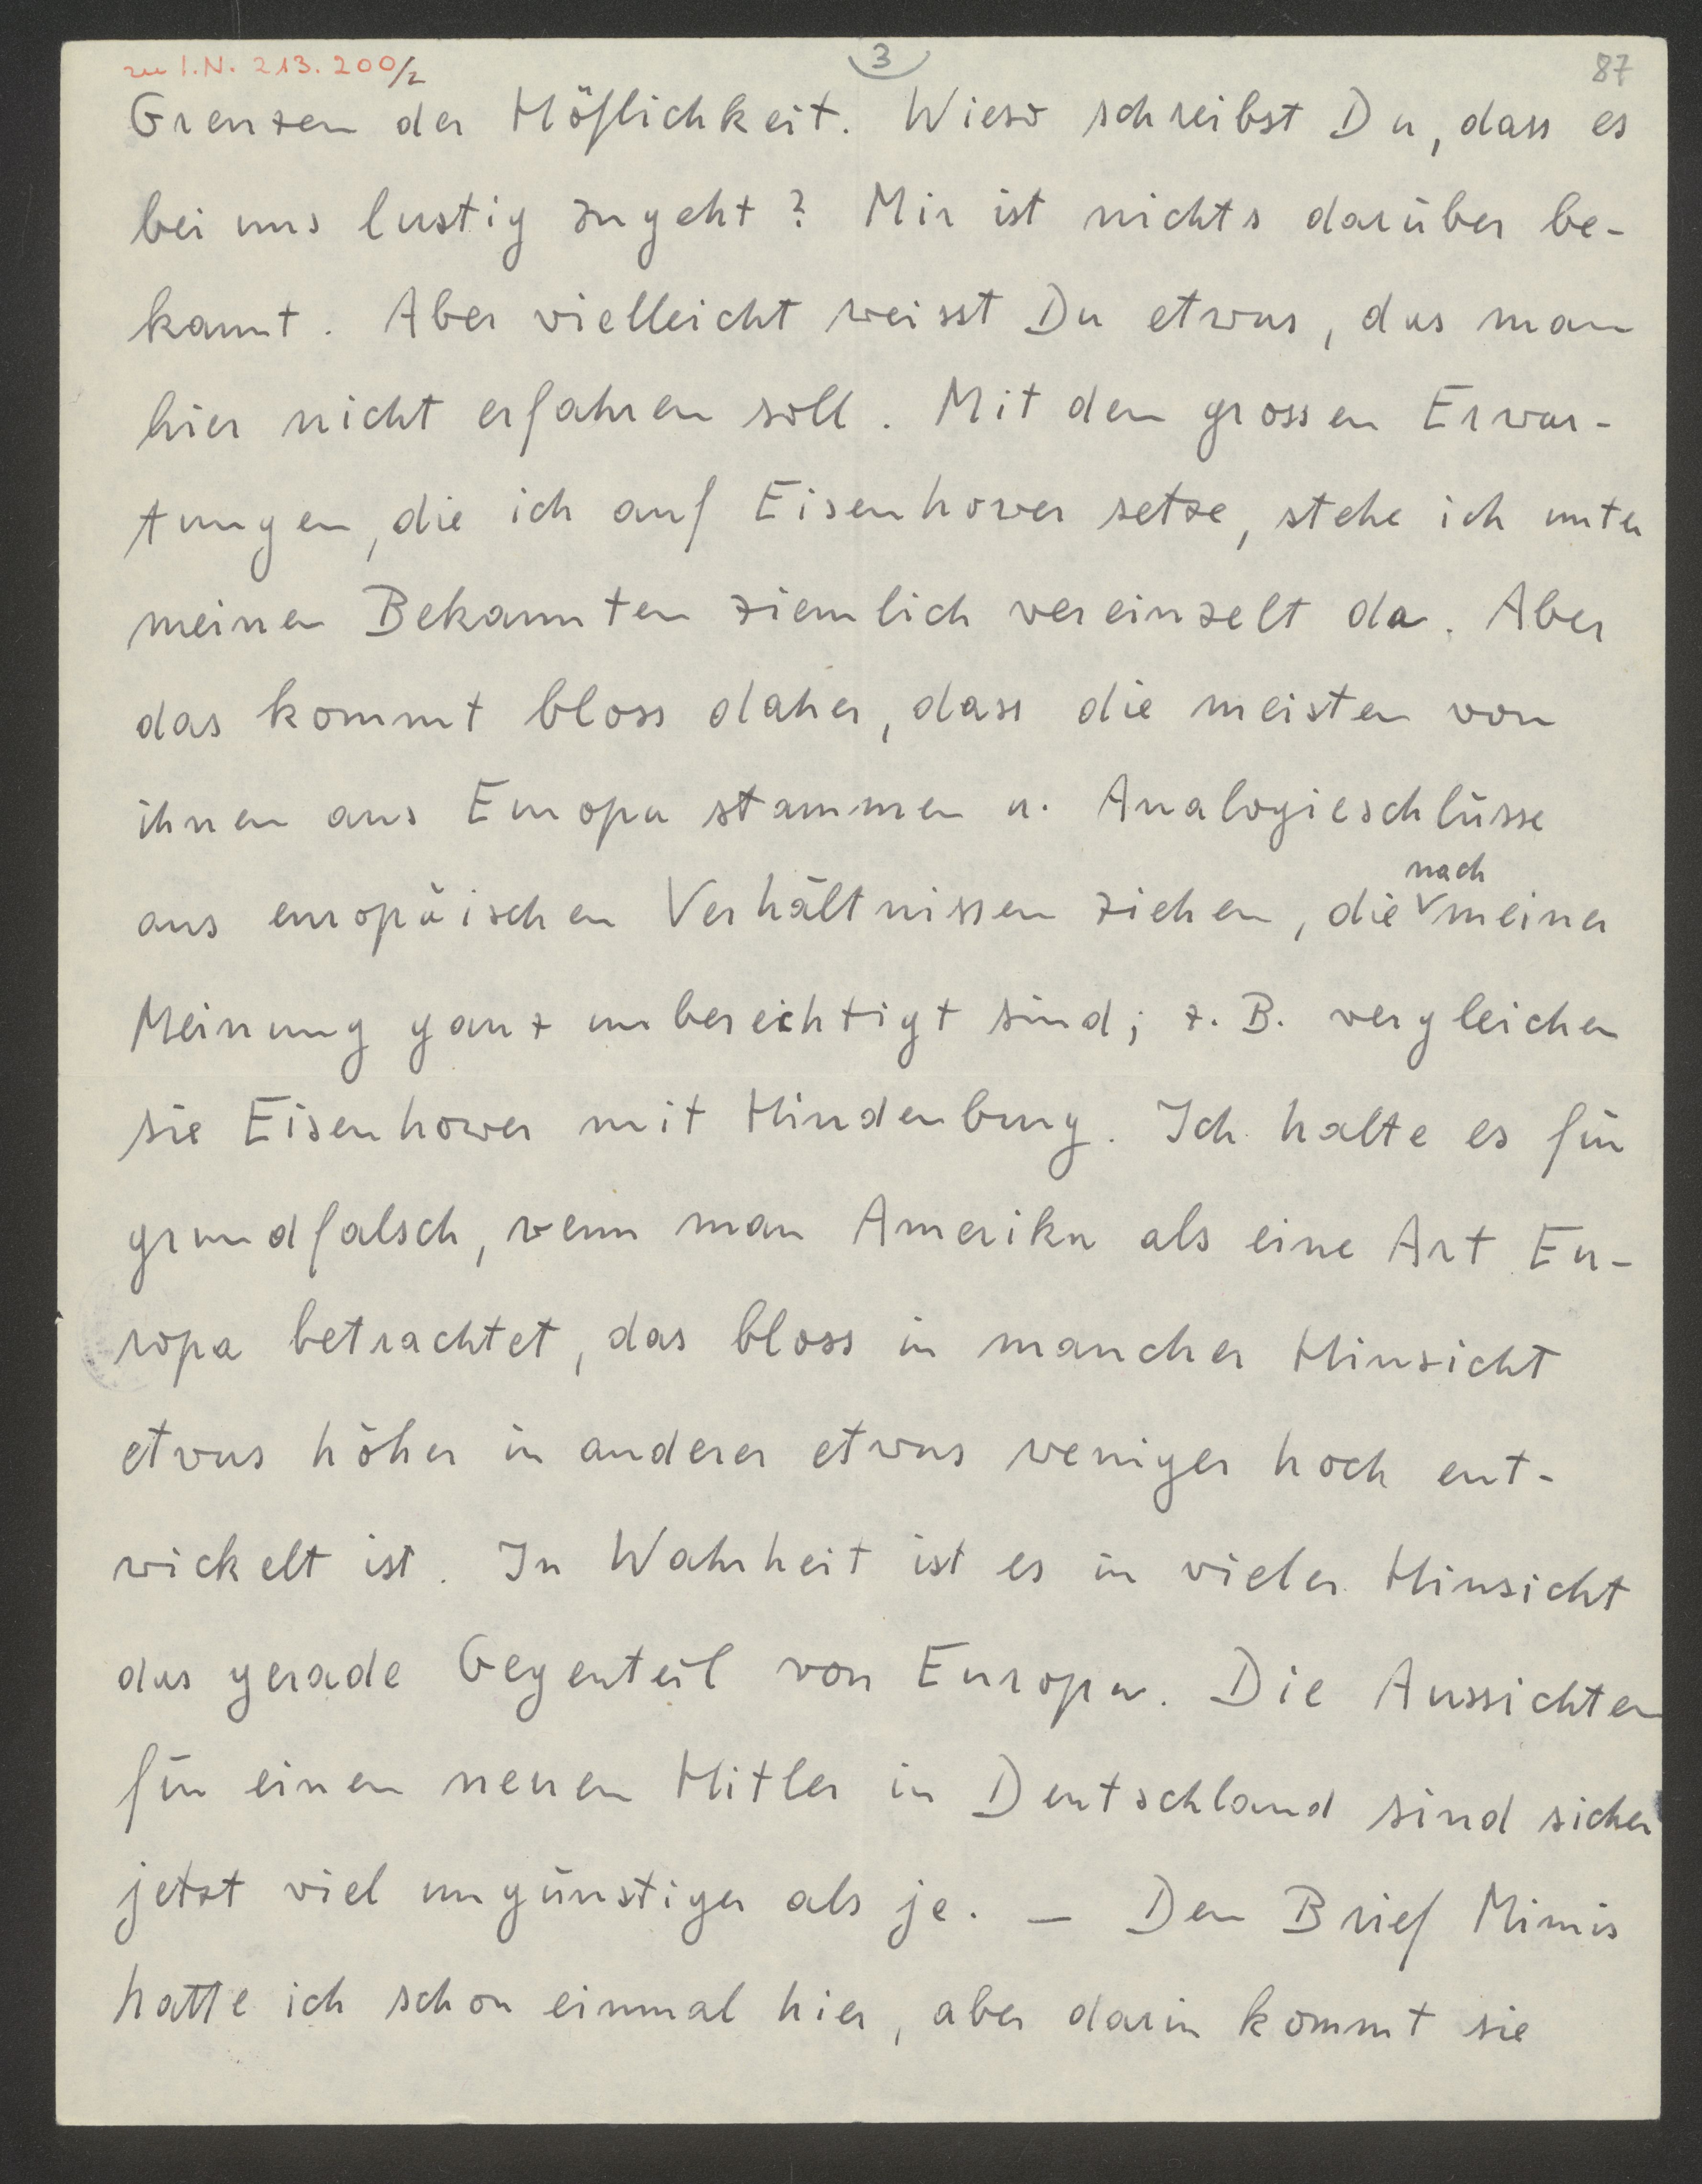 zu I.N. 213.200/2
3
87
Grenzen der Höflichkeit. Wieso schreibst Du, dass es
bei uns lustig zugeht? Mir ist nichts darüber be-
kannt. Aber vielleicht weisst Du etwas, das man
hier nicht erfahren soll. Mit den grossen Erwar-
tungen, die ich auf Eisenhower setze, stehe ich unter
meinen Bekannten ziemlich vereinzelt da. Aber
das kommt bloss daher, dass die meisten von
ihnen aus Europa stammen u. Analogieschlüsse
aus europäischen Verhältnissen ziehen, die nach meiner
Meinung ganz unberechtigt sind; z. B. vergleichen
sie Eisenhower mit Hindenburg. Ich halte es für
grundfalsch, wenn man Amerika als eine Art Eu-
ropa betrachtet, das bloss in mancher Hinsicht
etwas höher in anderer etwas weniger hoch ent-
wickelt ist. In Wahrheit ist es in vieler Hinsicht
das gerade Gegenteil von Europa. Die Aussichten
für einen neuen Hitler in Deutschland sind sicher
jetzt viel ungünstiger als je. – Den Brief Mimis
hatte ich schon einmal hier, aber darin kommt sie